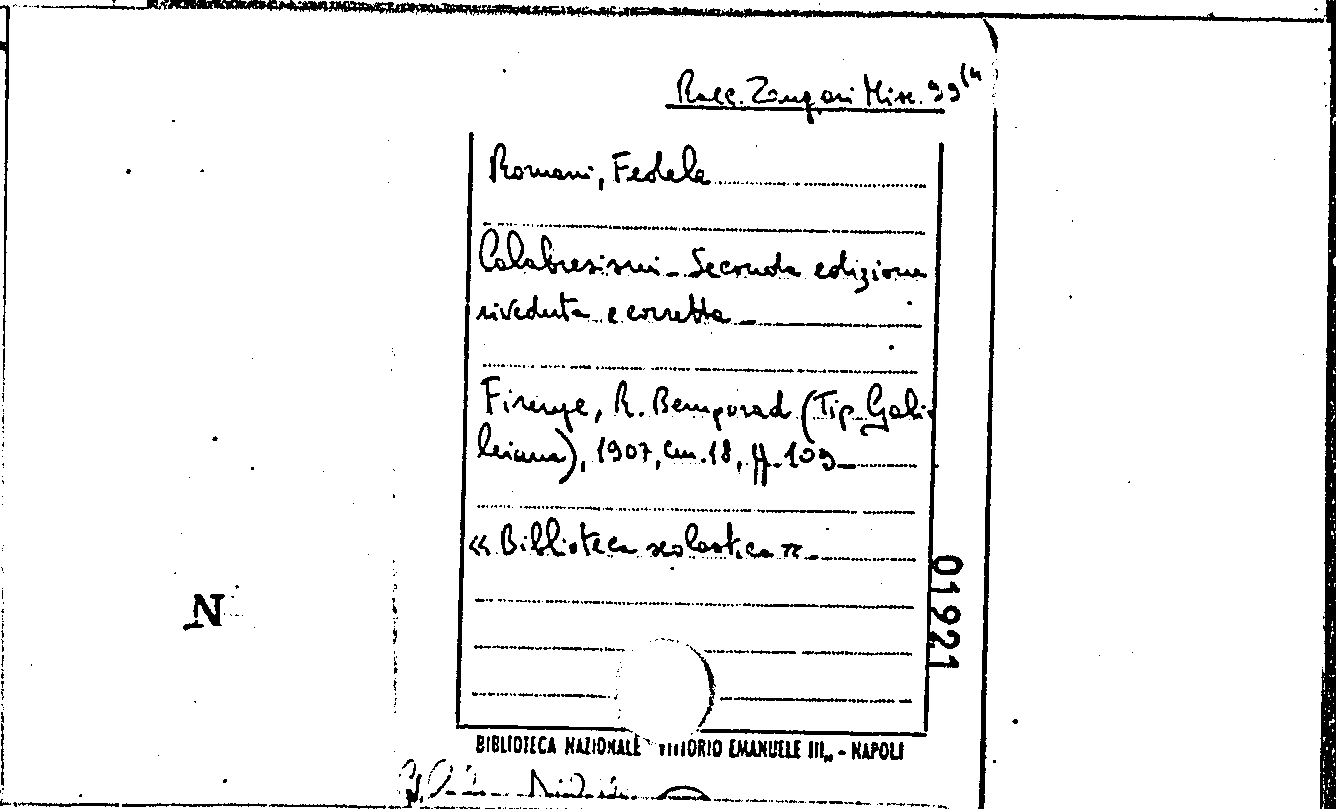 Racc. Zangari Misc. 99(4
Romani, Fedele
Calabresismi - Seconda edizione
riveduta e corretta -
Firenze, R. Bemporad (Tip. Gali-
leiana), 1907, cm. 18, pp. 109
« Biblioteca scolastica ».
01921
N
BIBLIOTECA NAZIONALE "VITTORIO EMANUELE III„ - NAPOLI